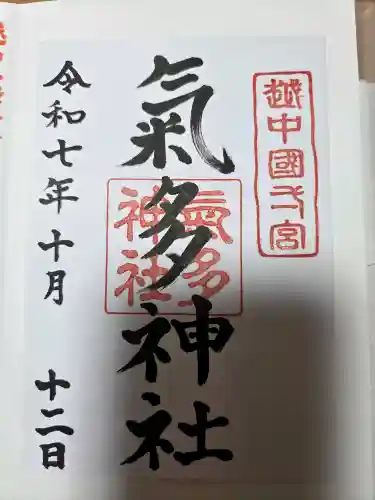 越中國一宮
氣多神社
氣多
神社
令和七年十月十二日